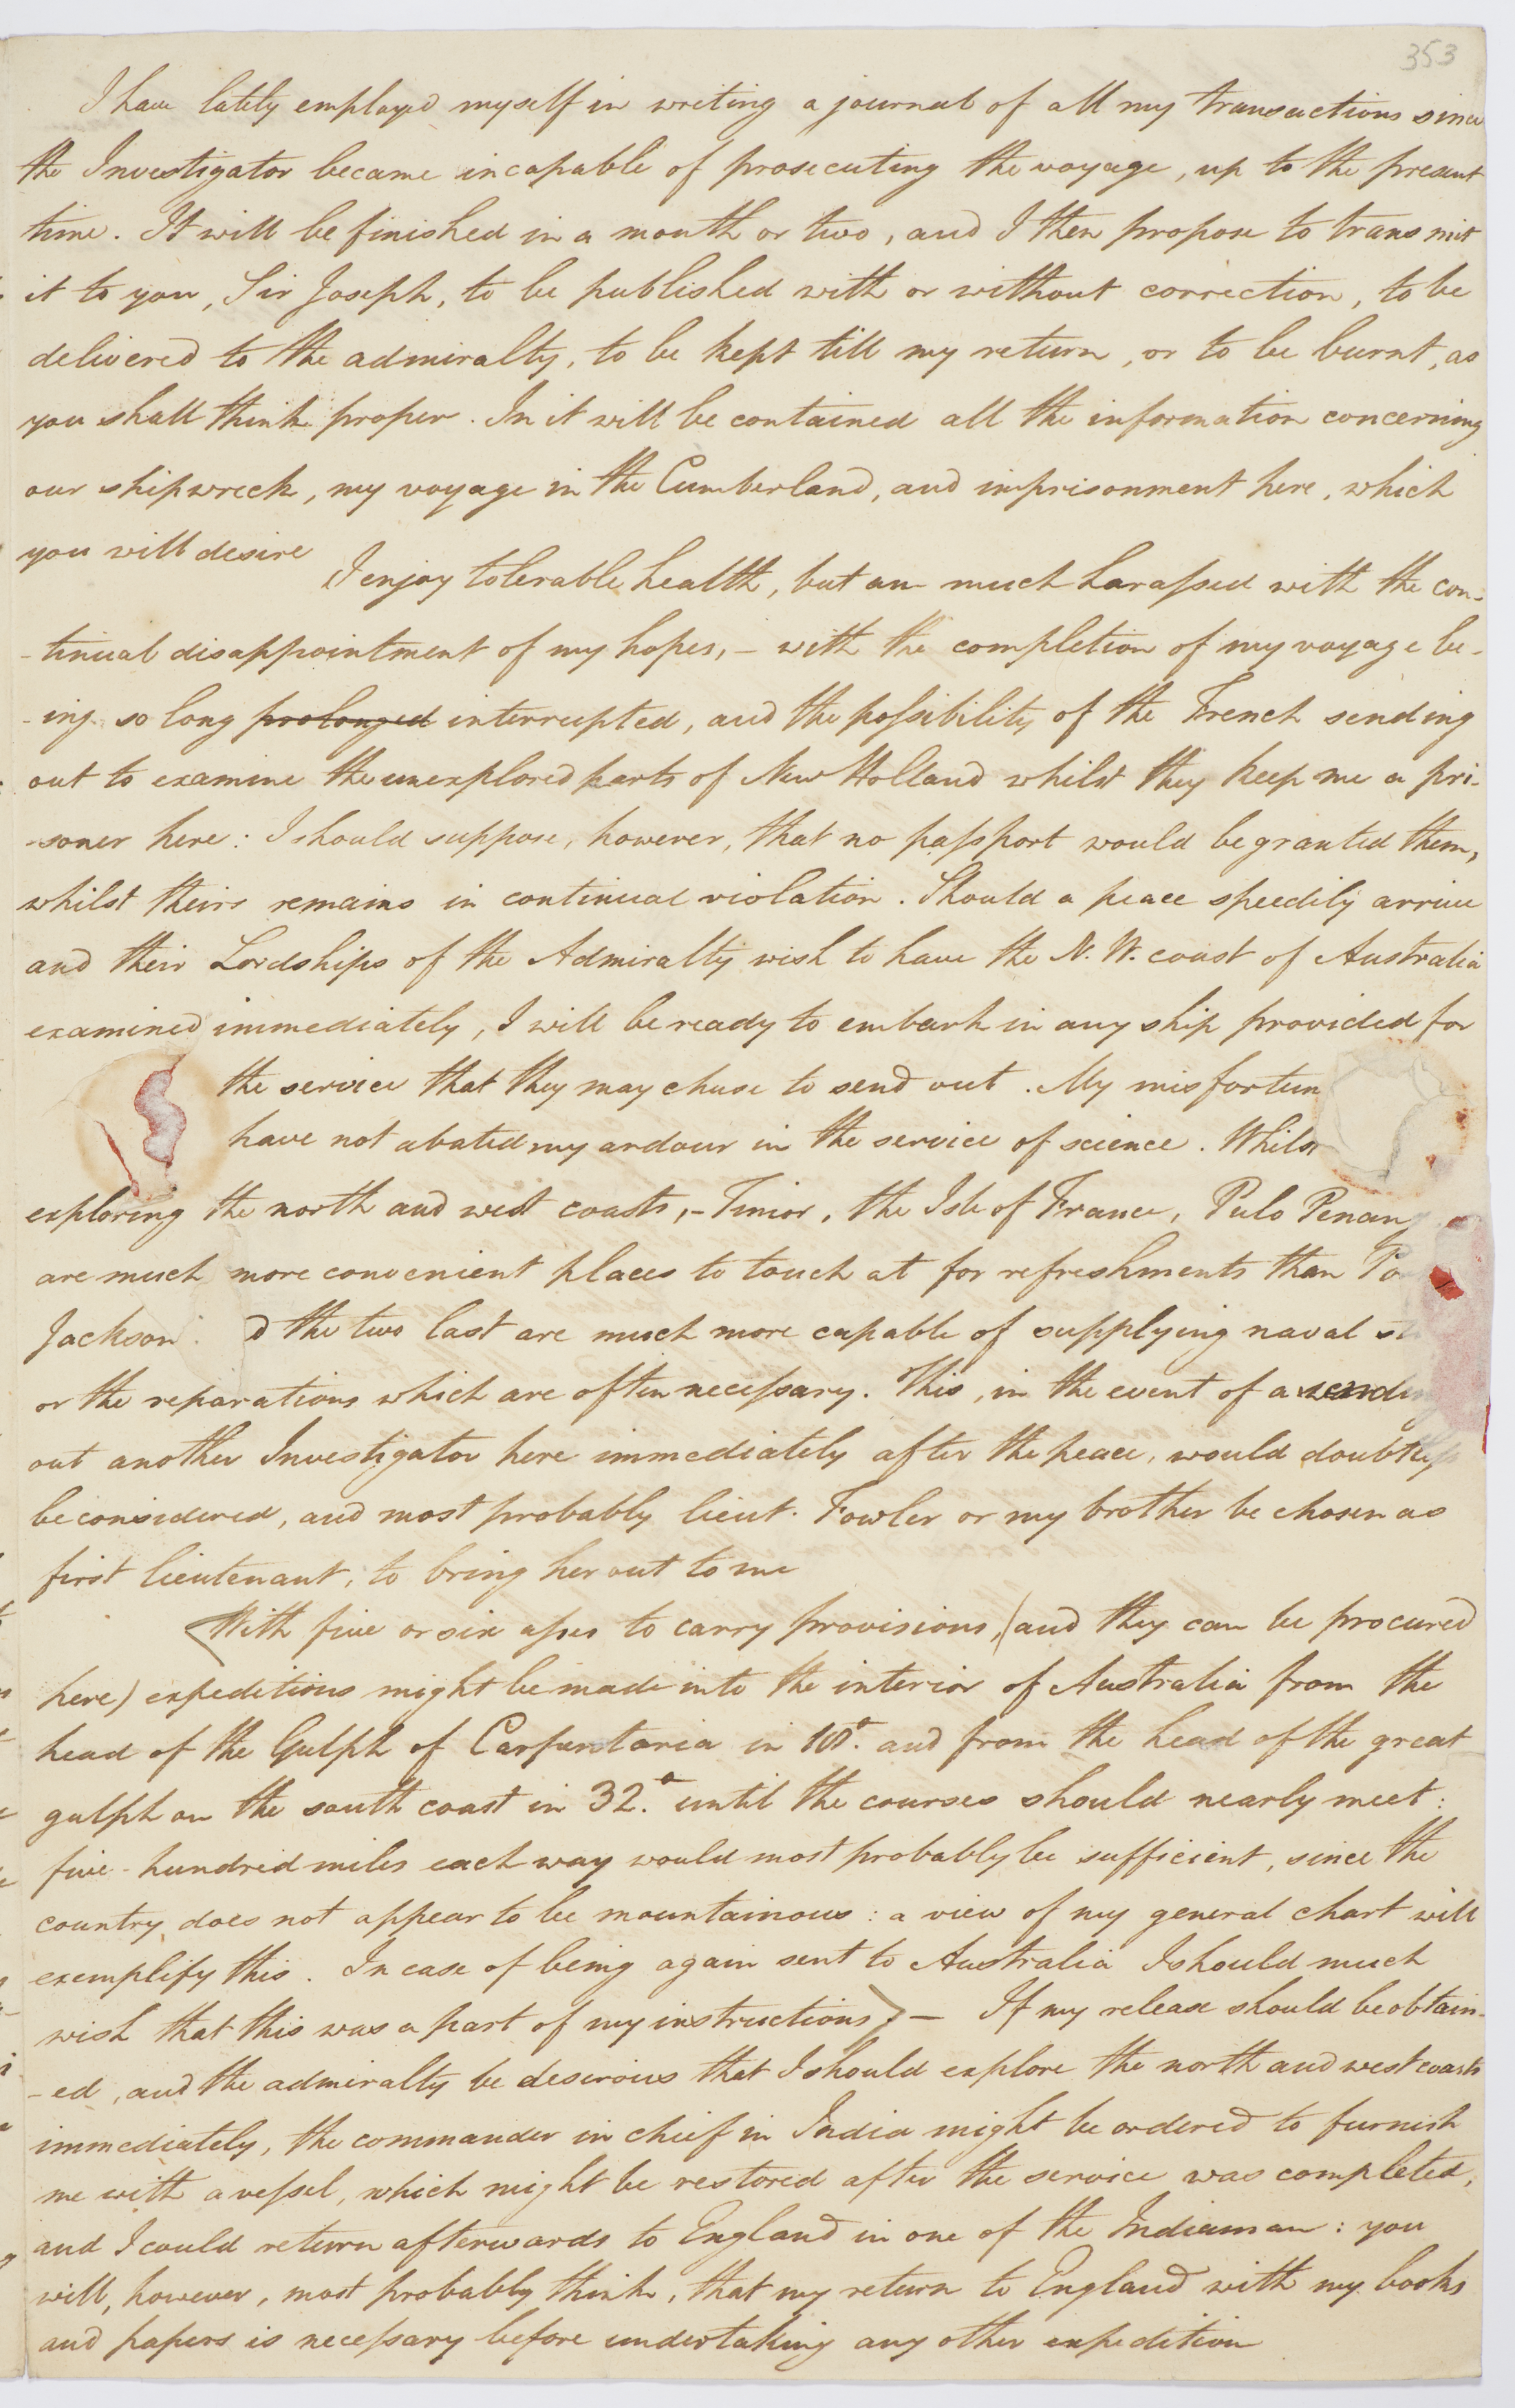 353
I have lately employed myself in writing a journal of all my transactions since
the Investigator became incapable of prosecuting the voyage, up to the present
time. It will be finished in a month or two, and I then propose to transmit
it to you, Sir Joseph, to be published with or without correction, to be
delivered to the admiralty, to be kept till my return, or to be burnt, as
you shall think proper. In it will be contained all the information concerning
our shipwreck, my voyage in the Cumberland, and imprisonment here, which
you will desire
I enjoy tolerable health, but am much harassed with the con-
-tinual disappointment of my hopes, – with the completion of my voyage be-
-ing so long prolonged interrupted, and the possibility of the French sending
out to examine the unexplored parts of New Holland whilst they keep me a pri-
-soner here: I should suppose, however, that no passport would be granted them,
whilst theirs remains in continual violation. Should a peace speedily arrive
and their Lordships of the Admiralty wish to have the N. W. coast of Australia
examined immediately, I will be ready to embark in any ship provided for
the service that they may chuse to send out. My misfortun
have not abated my ardour in the service of science. Whilst
exploring the north and west coasts, – Timor, the Isle of France, Pulo Penang
are much more convenient places to touch at for refreshments than Po
Jackson d the two last are much more capable of supplying naval st
or the reparations which are often necessary. This, in the event of a sendin
out another Investigator here immediately after the peace, would doubtless
be considered, and most probably lieut. Fowler or my brother be chosen as
first lieutenant, to bring her out to me
With five or six asses to carry provisions, (and they can be procured
here) expeditions might be made into the interior of Australia from the
head of the Gulph of Carpentaria in 18°. and from the head of the great
gulph on the south coast in 32.° until the courses should nearly meet:
five-hundred miles each way would most probably be sufficient, since the
country does not appear to be mountainous: a view of my general chart will
exemplify this. In case of being again sent to Australia I should much
wish that this was a part of my instructions>. – If my release should be obtain-
-ed, and the admiralty be desirous that I should explore the north and west coasts
immediately, the commander in chief in India might be ordered to furnish
me with a vessel, which might be restored after the service was completed,
and I could return afterwards to England in one of the Indiaman: you
will, however, most probably think, that my return to England with my books
and papers is necessary before undertaking any other expedition